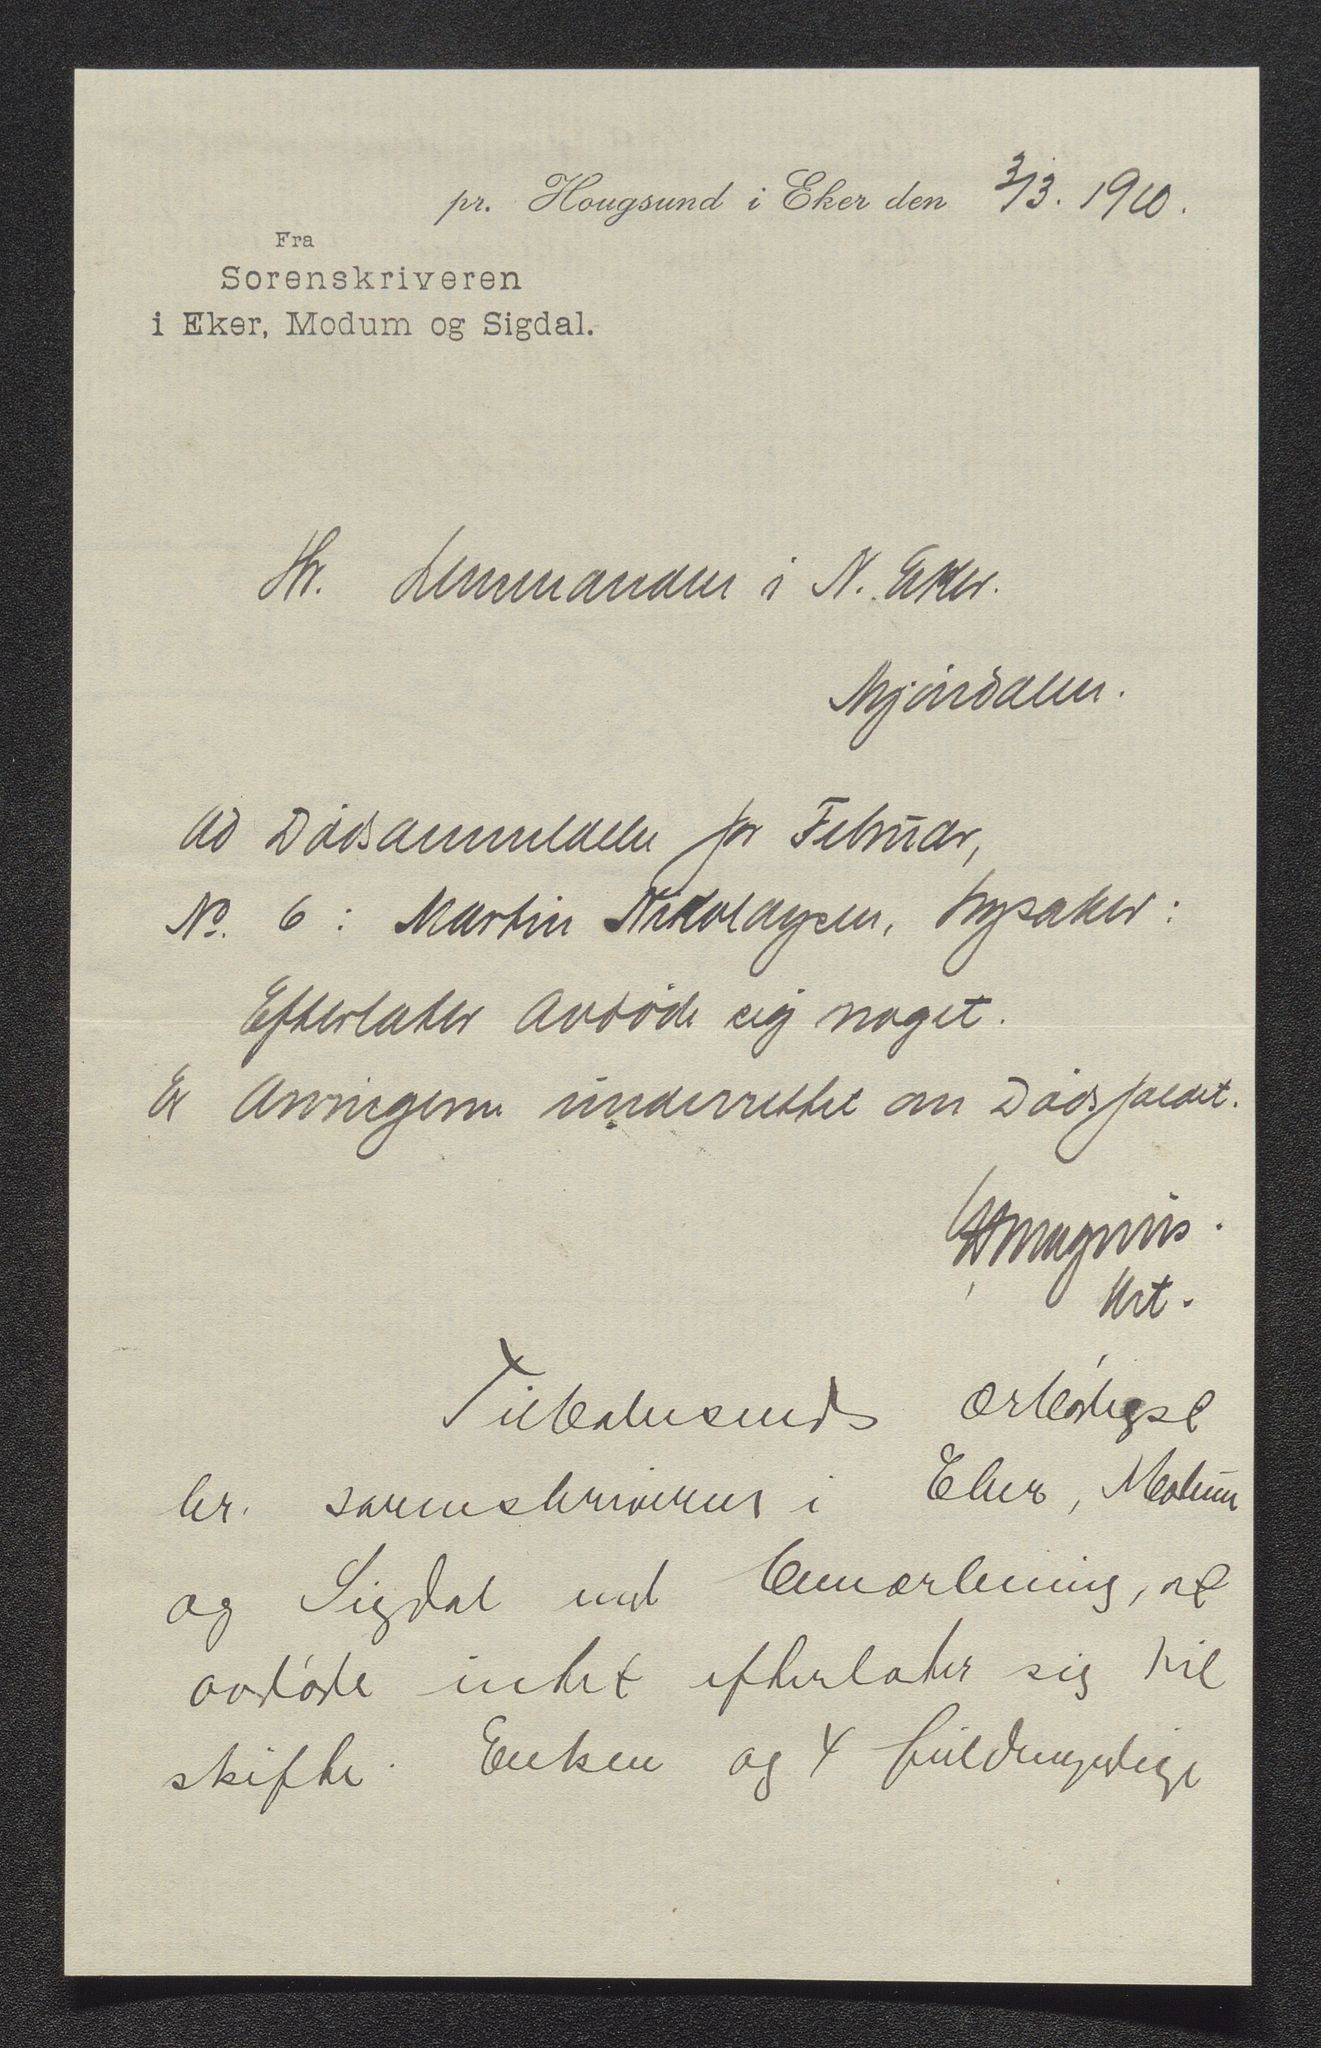 pr. Hougsund i Eker den 3/3. 1910.
Fra
Sorenskriveren
i Eker, Modum og Sigdal.
Hr. Lensmanden i N. Eker.
Mjøndalen.
Ad Dødsanmeldelse for Februar,
No. 6: Martin Nikolaysen, Ryssaker:
Efterlater Avdøde sig noget.
Er Arvingerne underrettet om Dødsfaldet.
Magnus.
Kst.
Tilbakesendes ærbødigst
hr. sorenskriveren i Eker, Modum
og Sigdal med bemerkning, at
avdøde intet efterlater sig til
skifte. Enken og 4 fuldmyndige